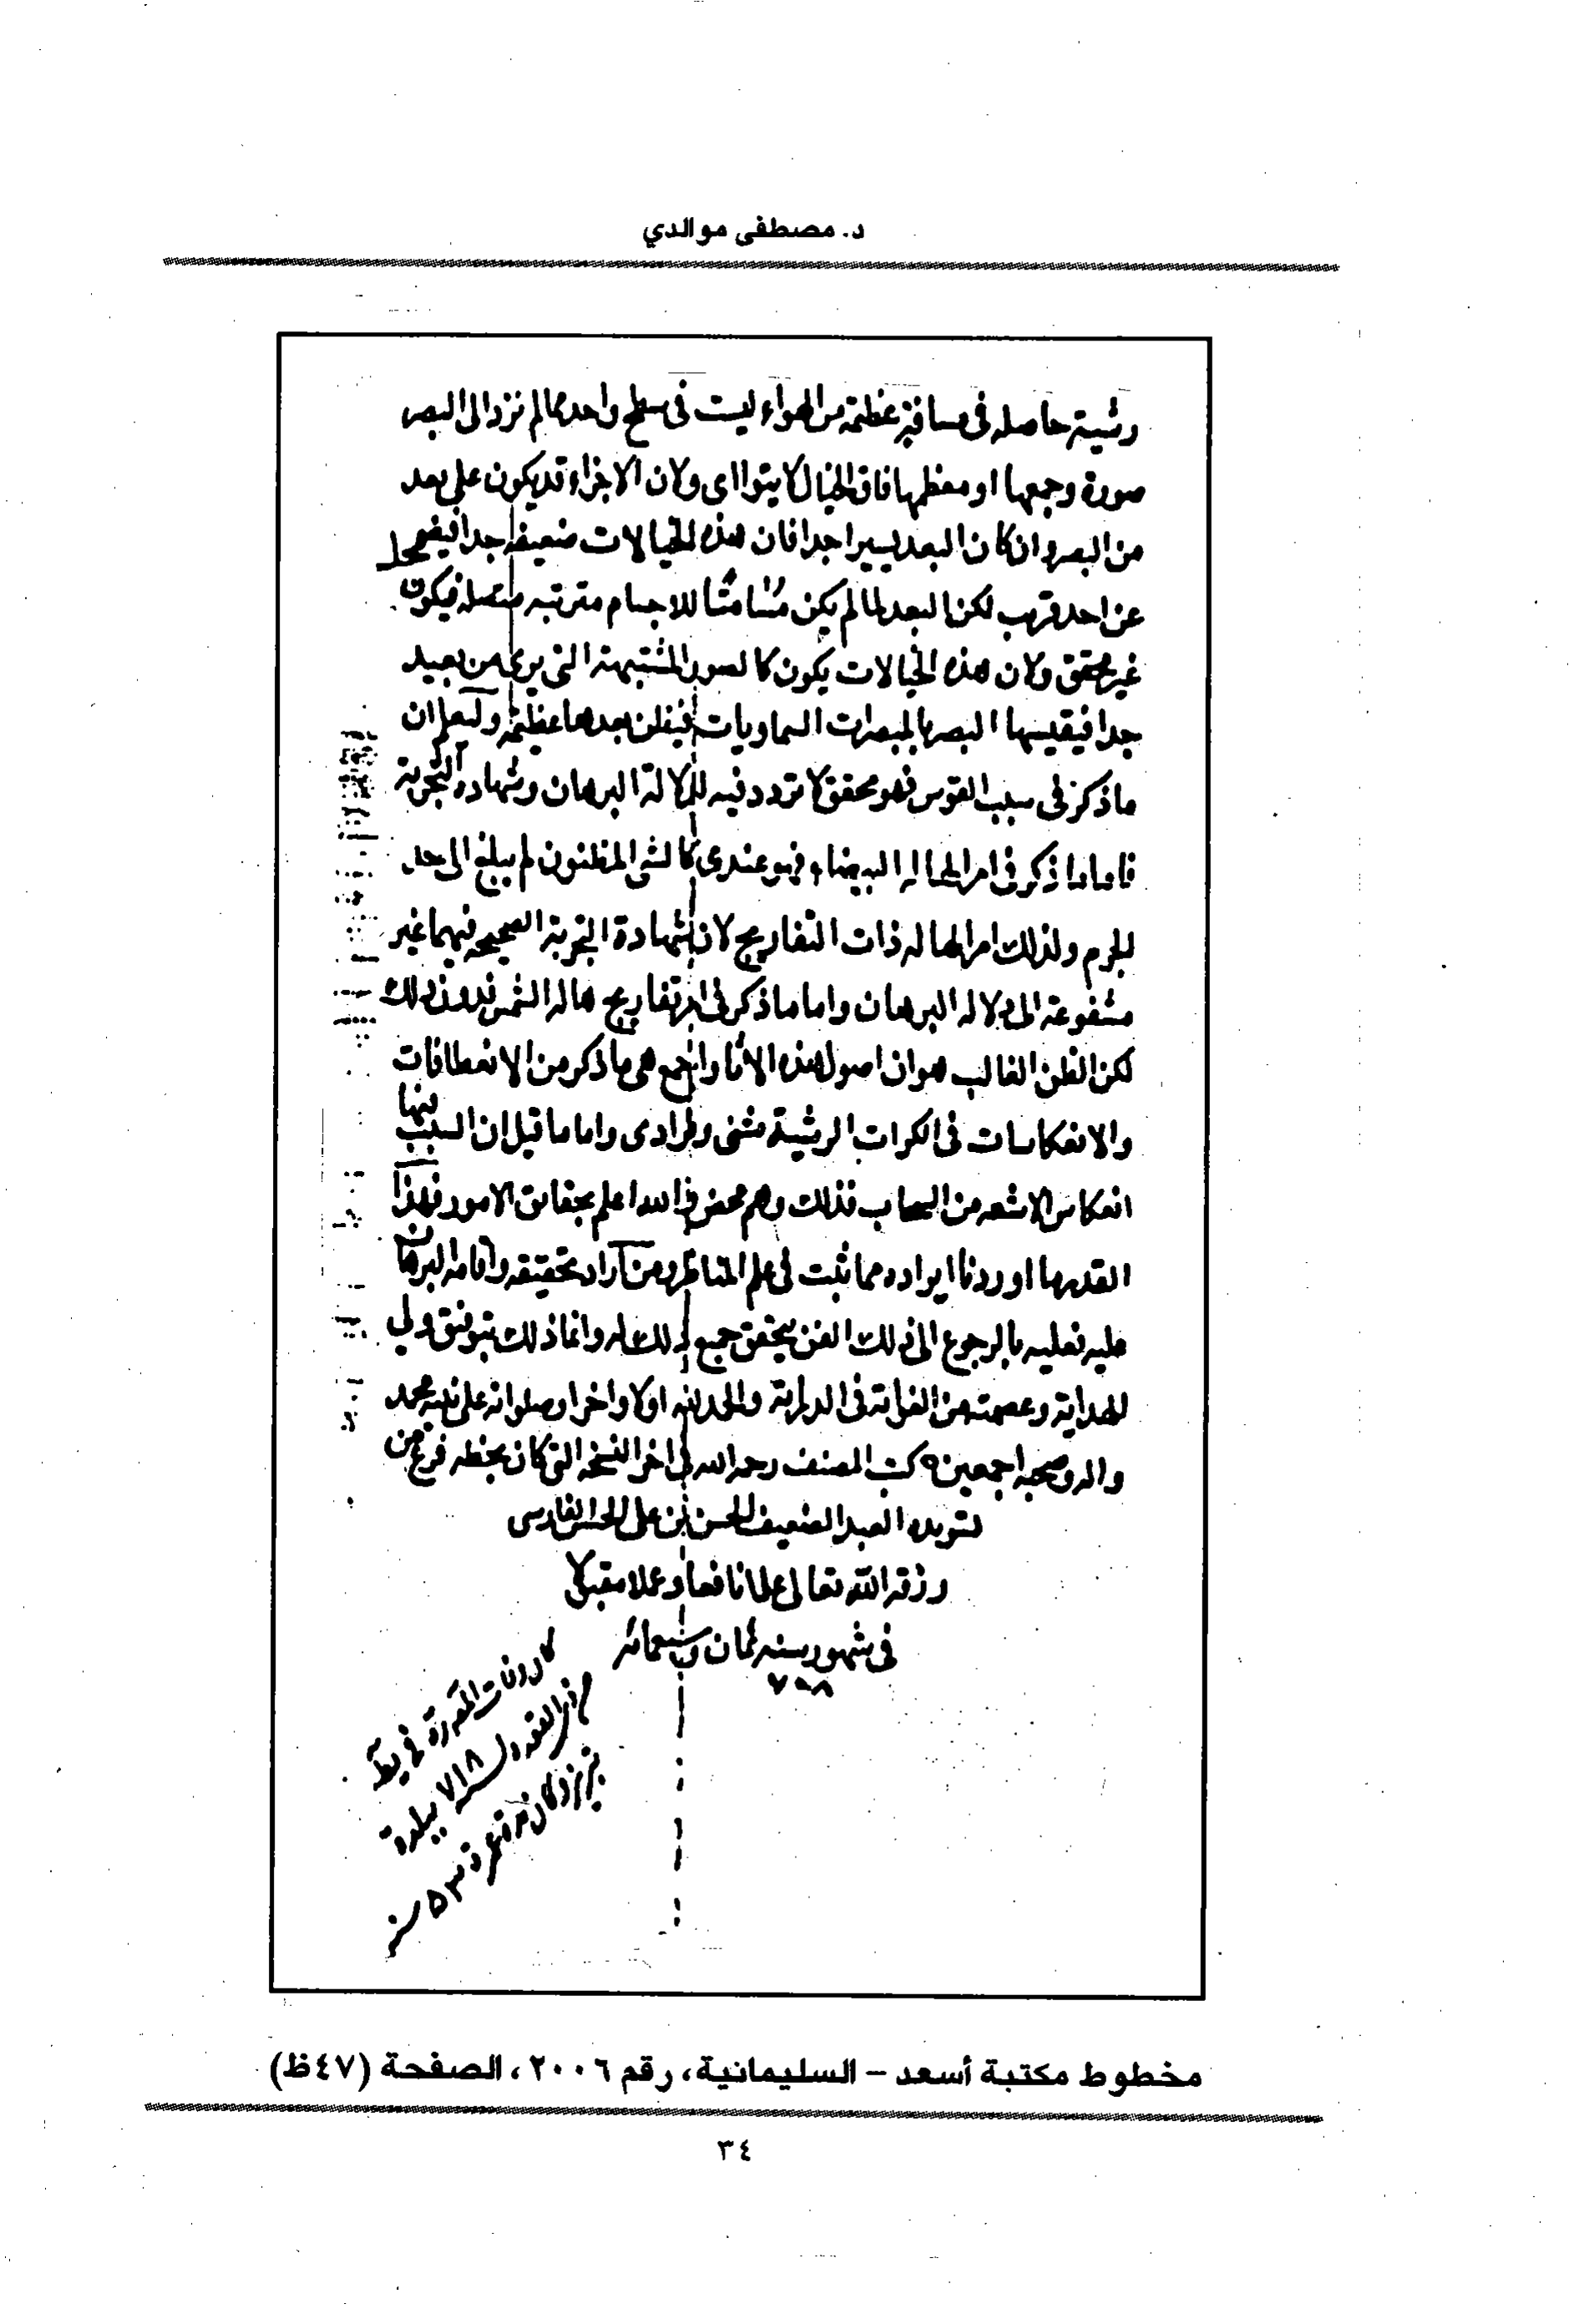 د. مصطفى موالدي
رشية حاصله فى مسافة عظيمة من الهواء ليست فى سطح واحد مالم تزد الى البصر
صورة وجمعها او معظمها فان الخيال لا يتوااى ولان الاجزاء قد يكون على بعد
من البصر وان كان البعد يسيرا جدا فان هذه الخيالات ضعيفه جدا فيضمحل
عن احد قرب لكن البعد لما لم يكن مسامتا للاجسام مترتبه متصله فيكون
غير محقق ولان هذه الخيالات يكون كالصور المشتبهة التى يرى من بعيد
جدا فيقيسها البصر بالمبصرات السماويات فيظن بعدها عظيمة وليعلم ان
ما ذكر فى سبب القوس فهو محقق لا تردد فيه لدلالة البرهان وشهادة التجربة
فاما ما ذكر فى امر الهاله البيضاء فهو عندى كالشى المظنون لم يبلغ الى حد
الجزم ولذلك امر الهاله ذات التقازيح لان شهادة التجربة الصحيحه فيهما غير
مشفوعة الى دلاله البرهان واما ما ذكر فى امر تقازيح هاله الشمس فدون ذلك
لكن الظن الغالب هو ان اصول هذه الاثار اجمع هى ما ذكر من الانعطافات
والانعكاسات فى الكرات الرشية مثنى وفرادى واما ما قيل ان السبب فيها
انعكاس الاشعه من السحاب فذلك وهم محض والله اعلم بحقائق الامور فهذا
القدر ما اوردنا ايراده مما ثبت فى علم المناظر ومن اراد تحقيقه واقامه البرهان
عليه فعليه بالرجوع الى ذلك الفن يتحقق جميع ذلك له وانما ذلك بتوفيق ولي
الهداية وعصمته من الغواية فى الدراية والحمد لله اولا واخرا وصلواته على نبيه محمد
واله وصحبه اجمعين ه كتب المصنف رحمه الله فى اخر النسخه التى كان بخطه فرغ من
تسويده العبد الضعيف الحسن بن على الحسن الفارسى
رزقه الله تعالى علما نافعا وعملا مقبولا
فى شهور سنه ثمان وسبعمائه
٧٠٨
فى
٧١٨ ببلدة
تبريز وكان
٥٣ سنة
مخطوط مكتبة أسعد - السليمانية، رقم ٢٠٠٦، الصفحة (٤٧ظ)
٣٤